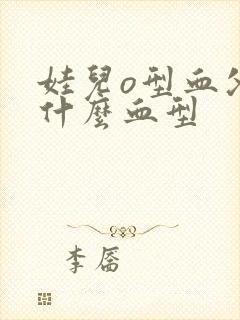 娃兒o型血父
什麼血型
李唇